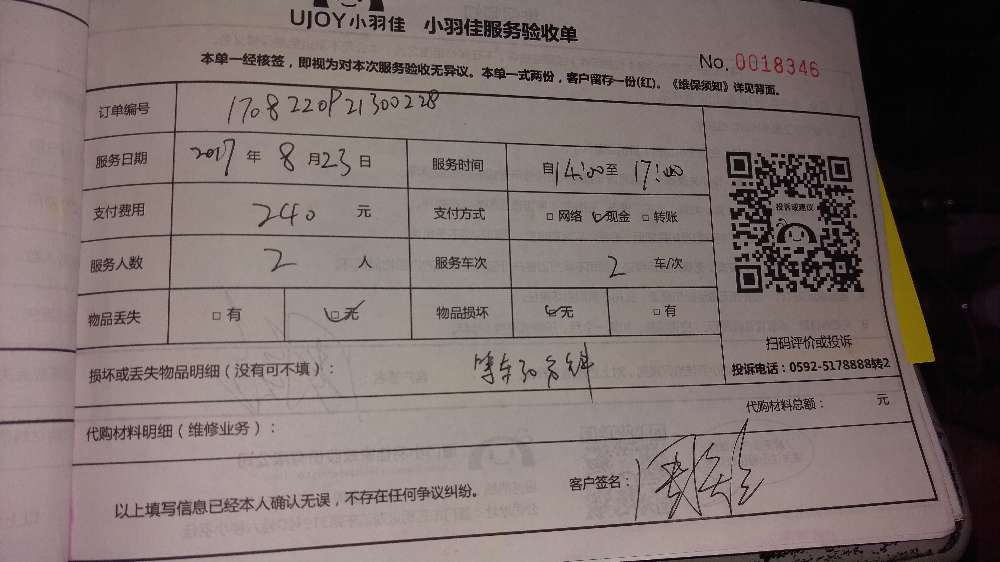 UJOY小羽佳 小羽佳服务验收单
No. 0018346
本单一经核签，即视为对本次服务验收无异议。本单一式两份，客户留存一份(红)。《维保须知》详见背面。
订单编号 170822091300228
服务日期 2017 年 8 月 23 日 服务时间 自14:00至 17:00
支付费用 240 元 支付方式 □网络 ☑现金 □转账
投诉或建议
服务人数 2 人 服务车次 2 车/次
物品丢失 □有 ☑无 物品损坏 ☑无 □有
扫码评价或投诉
投诉电话：0592-5178888转2
损坏或丢失物品明细（没有可不填）： 等车30分钟
代购材料总额： 元
代购材料明细（维修业务）：
客户签名：
以上填写信息已经本人确认无误，不存在任何争议纠纷。